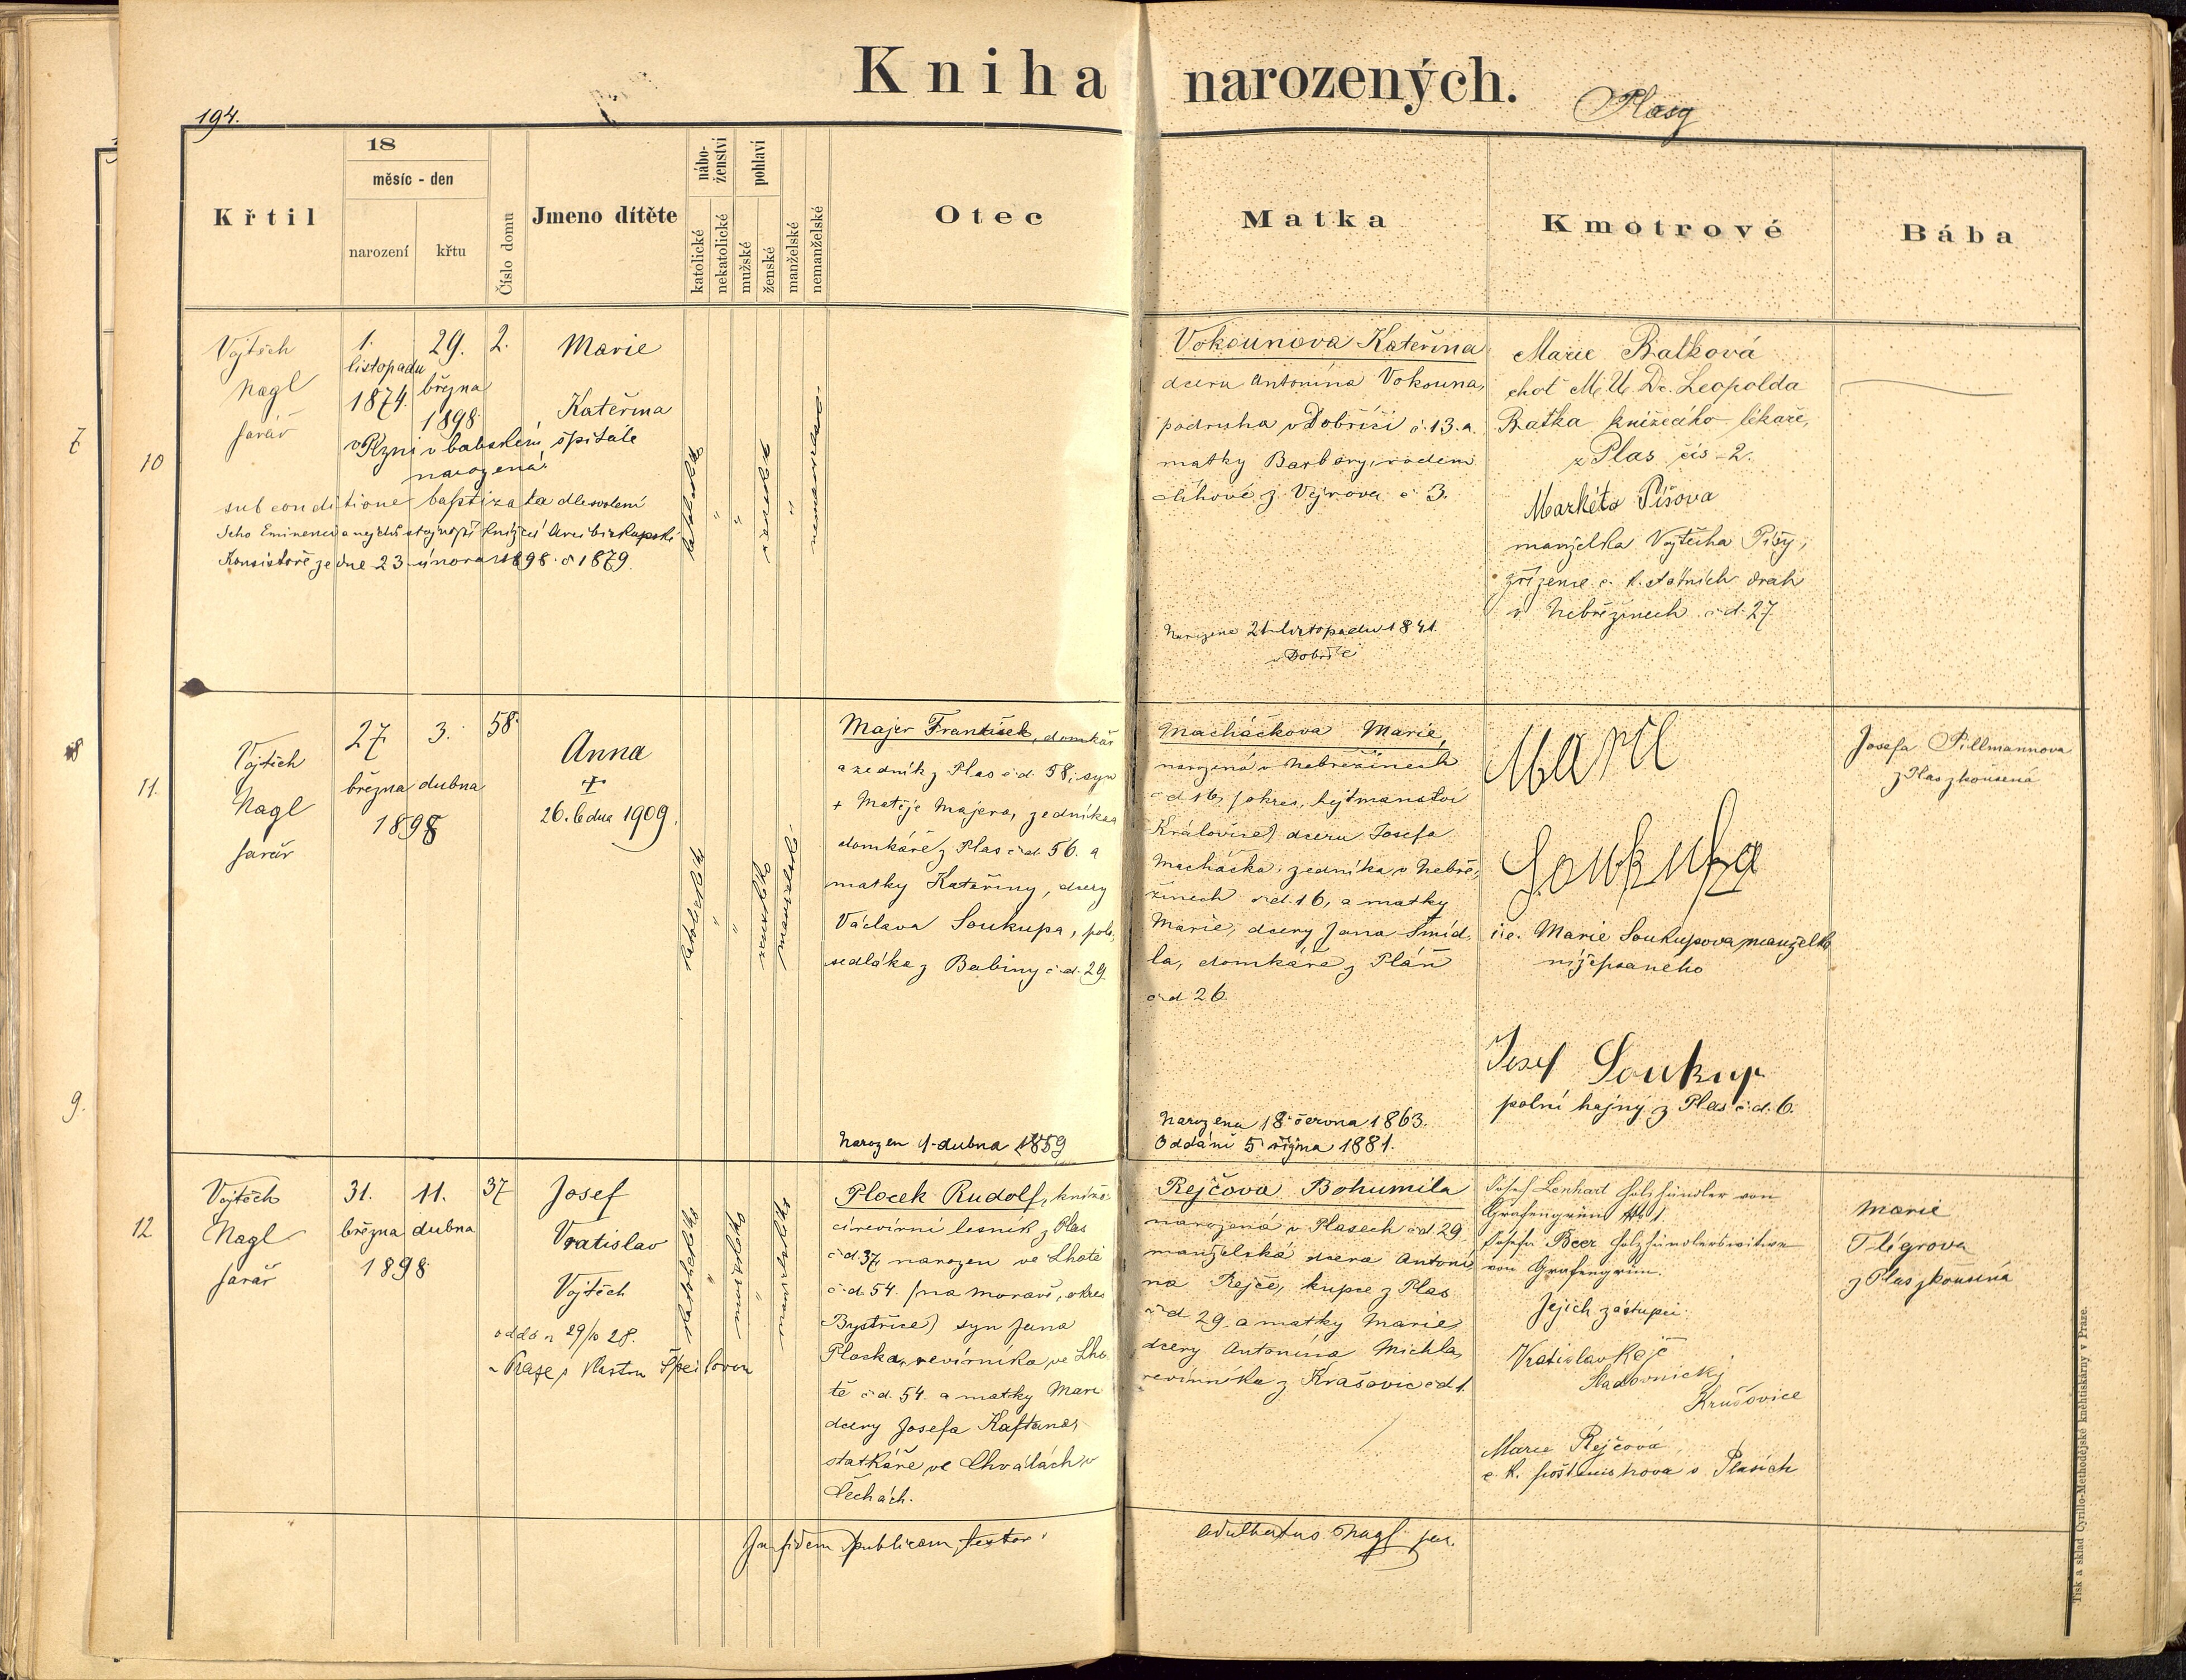 Kniha narozených.
Plasy
194.
Křtil
18
měsíc - den
narození
křtu
Číslo domu
Jmeno dítěte
nábo-
ženství
katolické
nekatolické
pohlaví
mužské
ženské
manželské
nemanželské
Otec
Matka
Kmotrové
Bába
7
10
Vojtěch
Nagl
farář
1.
listopadu
1874.
29.
března
1898.
2.
Marie
Kateřina
v Plzni v babském špitále
narozená.
sub conditione baptizata dle svolení
Jeho Eminencí a nejdůstojnější knížecí Arcibiskupské
Konsistoře ze dne 23 února 1898. č 1879.
katolické
"
"
ženské
"
nemanželské
Vokounova Kateřina
dcera Antonína Vokouna,
podruha v Dobříči č. 13. a
matky Barbory, rodem
z Vejrova č 3.
Narozena 21 listopadu 1841.
v Dobříči
Marie Batková
choť M. U. Dr. Leopolda
Batka knížecího lékaře,
z Plas čís 2.
Markéta Píšova
manželka Vojtěcha Píšy,
zřízence c. k. státních drah
v Nebřezinech č. d. 27.
8
11.
Vojtěch
Nagl
farář
27
března
3.
dubna
1898
58.
Anna
+
26. ledna 1909.
Majer František, domkář
a zedník z Plas č. d. 58, syn
+ Matěje Majera, zedníka a
domkáře z Plas č. d. 56. a
matky Kateřiny, dcery
Václava Soukupa, polo,
sedláka z Babiny č. d. 29.
Narozen 1. dubna 1859
Macháčkova Marie,
narozená v Nebřezinech
č d 16, (okres. hejtmanství
Kralovice) dcera Josefa
Macháčka, zedníka v Nebře,
zinech č. d. 16, a matky
Marie, dcery Jana Šmíd,
la, domkáře z Pláň
č d 26.
Narozena 18. června 1863.
Oddáni 5 října 1881.
Marie
Soukupa
i. e. Marie Soukupova manželka
nížepsaného
Josef Soukup
polní hajný z Plas č. d. 6.
Josefa Pillmannova
z Plas zkoušená
9.
12
Vojtěch
Nagl
farář
31.
března
11.
dubna
1898
37
Josef
Vratislav
Vojtěch
oddán 29/10 28.
v Praze s Vlastou
Plocek Rudolf, kníže,
cí revírní lesník z Plas
č. d. 37, narozen ve Lhotě
č. d. 54. (na Moravě, okres
Bystřice) syn Jana
Plocka, revírníka ve Lho
tě č. d. 54. a matky Marie
dcery Josefa Kaftana,
statkáře ve Chválách v
Čechách.
Rejčova Bohumila
narozená v Plasech č. d. 29
manželská dcera Antoní
na Rejče, kupce z Plas
č. d 29. a matky Marie,
dcery Antonína Michla,
revírníka z Krašovic č d 1.
Josef Lenhart Holzhändler von
Grafengrün No 1.
Josefa Beer Holzhändlerswitwe
von Grafengrün.
Jejich zástupci:
Vratislav Rejč
Sladovnický
Krušovice
Marie Rejčová,
c. k. poštmistrova v Plasích
Marie
Flígrova
z Plas zkoušená
In fidem publicam testor:
Adalbertus Nagl par.
Tisk a sklad Cyrillo-Methodějské kněhtiskárny v Praze.